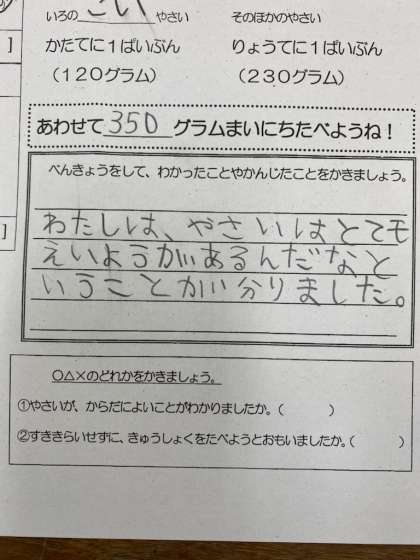 いろの こい やさい そのほかのやさい
かたてに1ぱいぶん りょうてに1ぱいぶん
(120グラム) (230グラム)
あわせて 350 グラムまいにちたべようね!
べんきょうをして、わかったことやかんじたことをかきましょう。
わたしは、やさいはとても
えいようがあるんだなと
いうことが分りました。
○△×のどれかをかきましょう。
①やさいが、からだによいことがわかりましたか。( )
②すききらいせずに、きゅうしょくをたべようとおもいましたか。( )